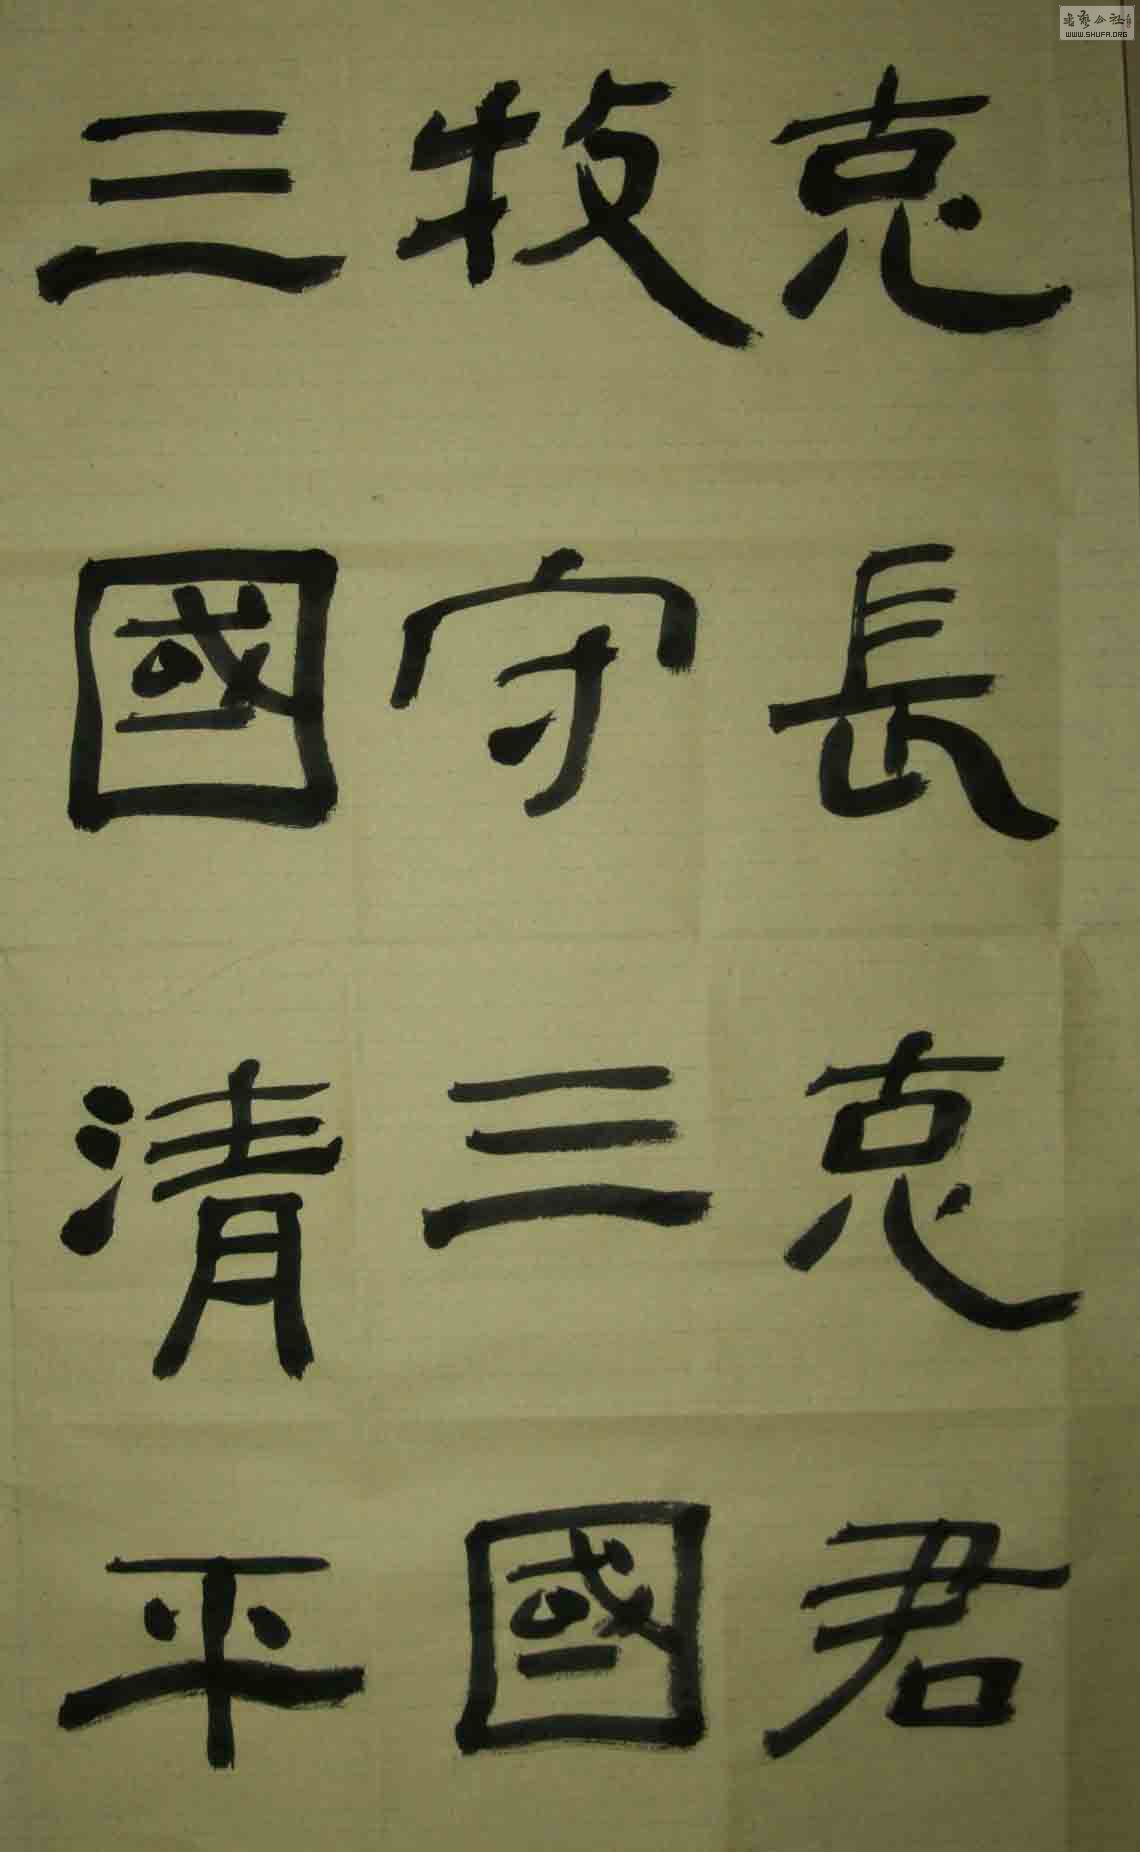 克長克君
牧守三國
三國清平
書藝公社
WWW.SHUFA.ORG